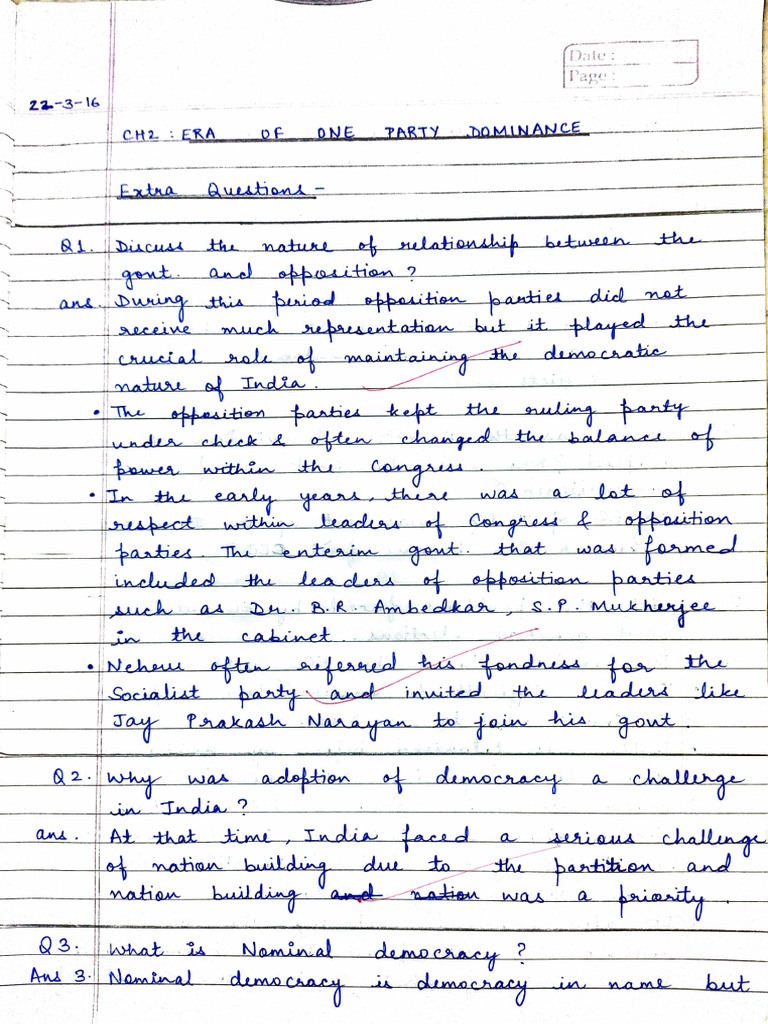 Date :
Page :
22-3-16
CH2 : ERA OF ONE PARTY DOMINANCE
Extra Questions -
Q1. Discuss the nature of relationship between the
govt. and opposition ?
ans. During this period opposition parties did not
receive much representation but it played the
crucial role of maintaining the democratic
nature of India.
• The opposition parties kept the ruling party
under check & often changed the balance of
power within the Congress.
• In the early years, there was a lot of
respect within leaders of Congress & opposition
parties. The enterim govt. that was formed
included the leaders of opposition parties
such as Dr. B.R. Ambedkar, S.P. Mukherjee
in the cabinet.
• Nehru often referred his fondness for the
Socialist party and invited the leaders like
Jay Prakash Narayan to join his govt.
Q2. Why was adoption of democracy a challenge
in India ?
ans. At that time, India faced a serious challenge
of nation building due to the partition and
nation building and nation was a priority.
Q3. What is Nominal democracy ?
Ans 3. Nominal democracy is democracy in name but